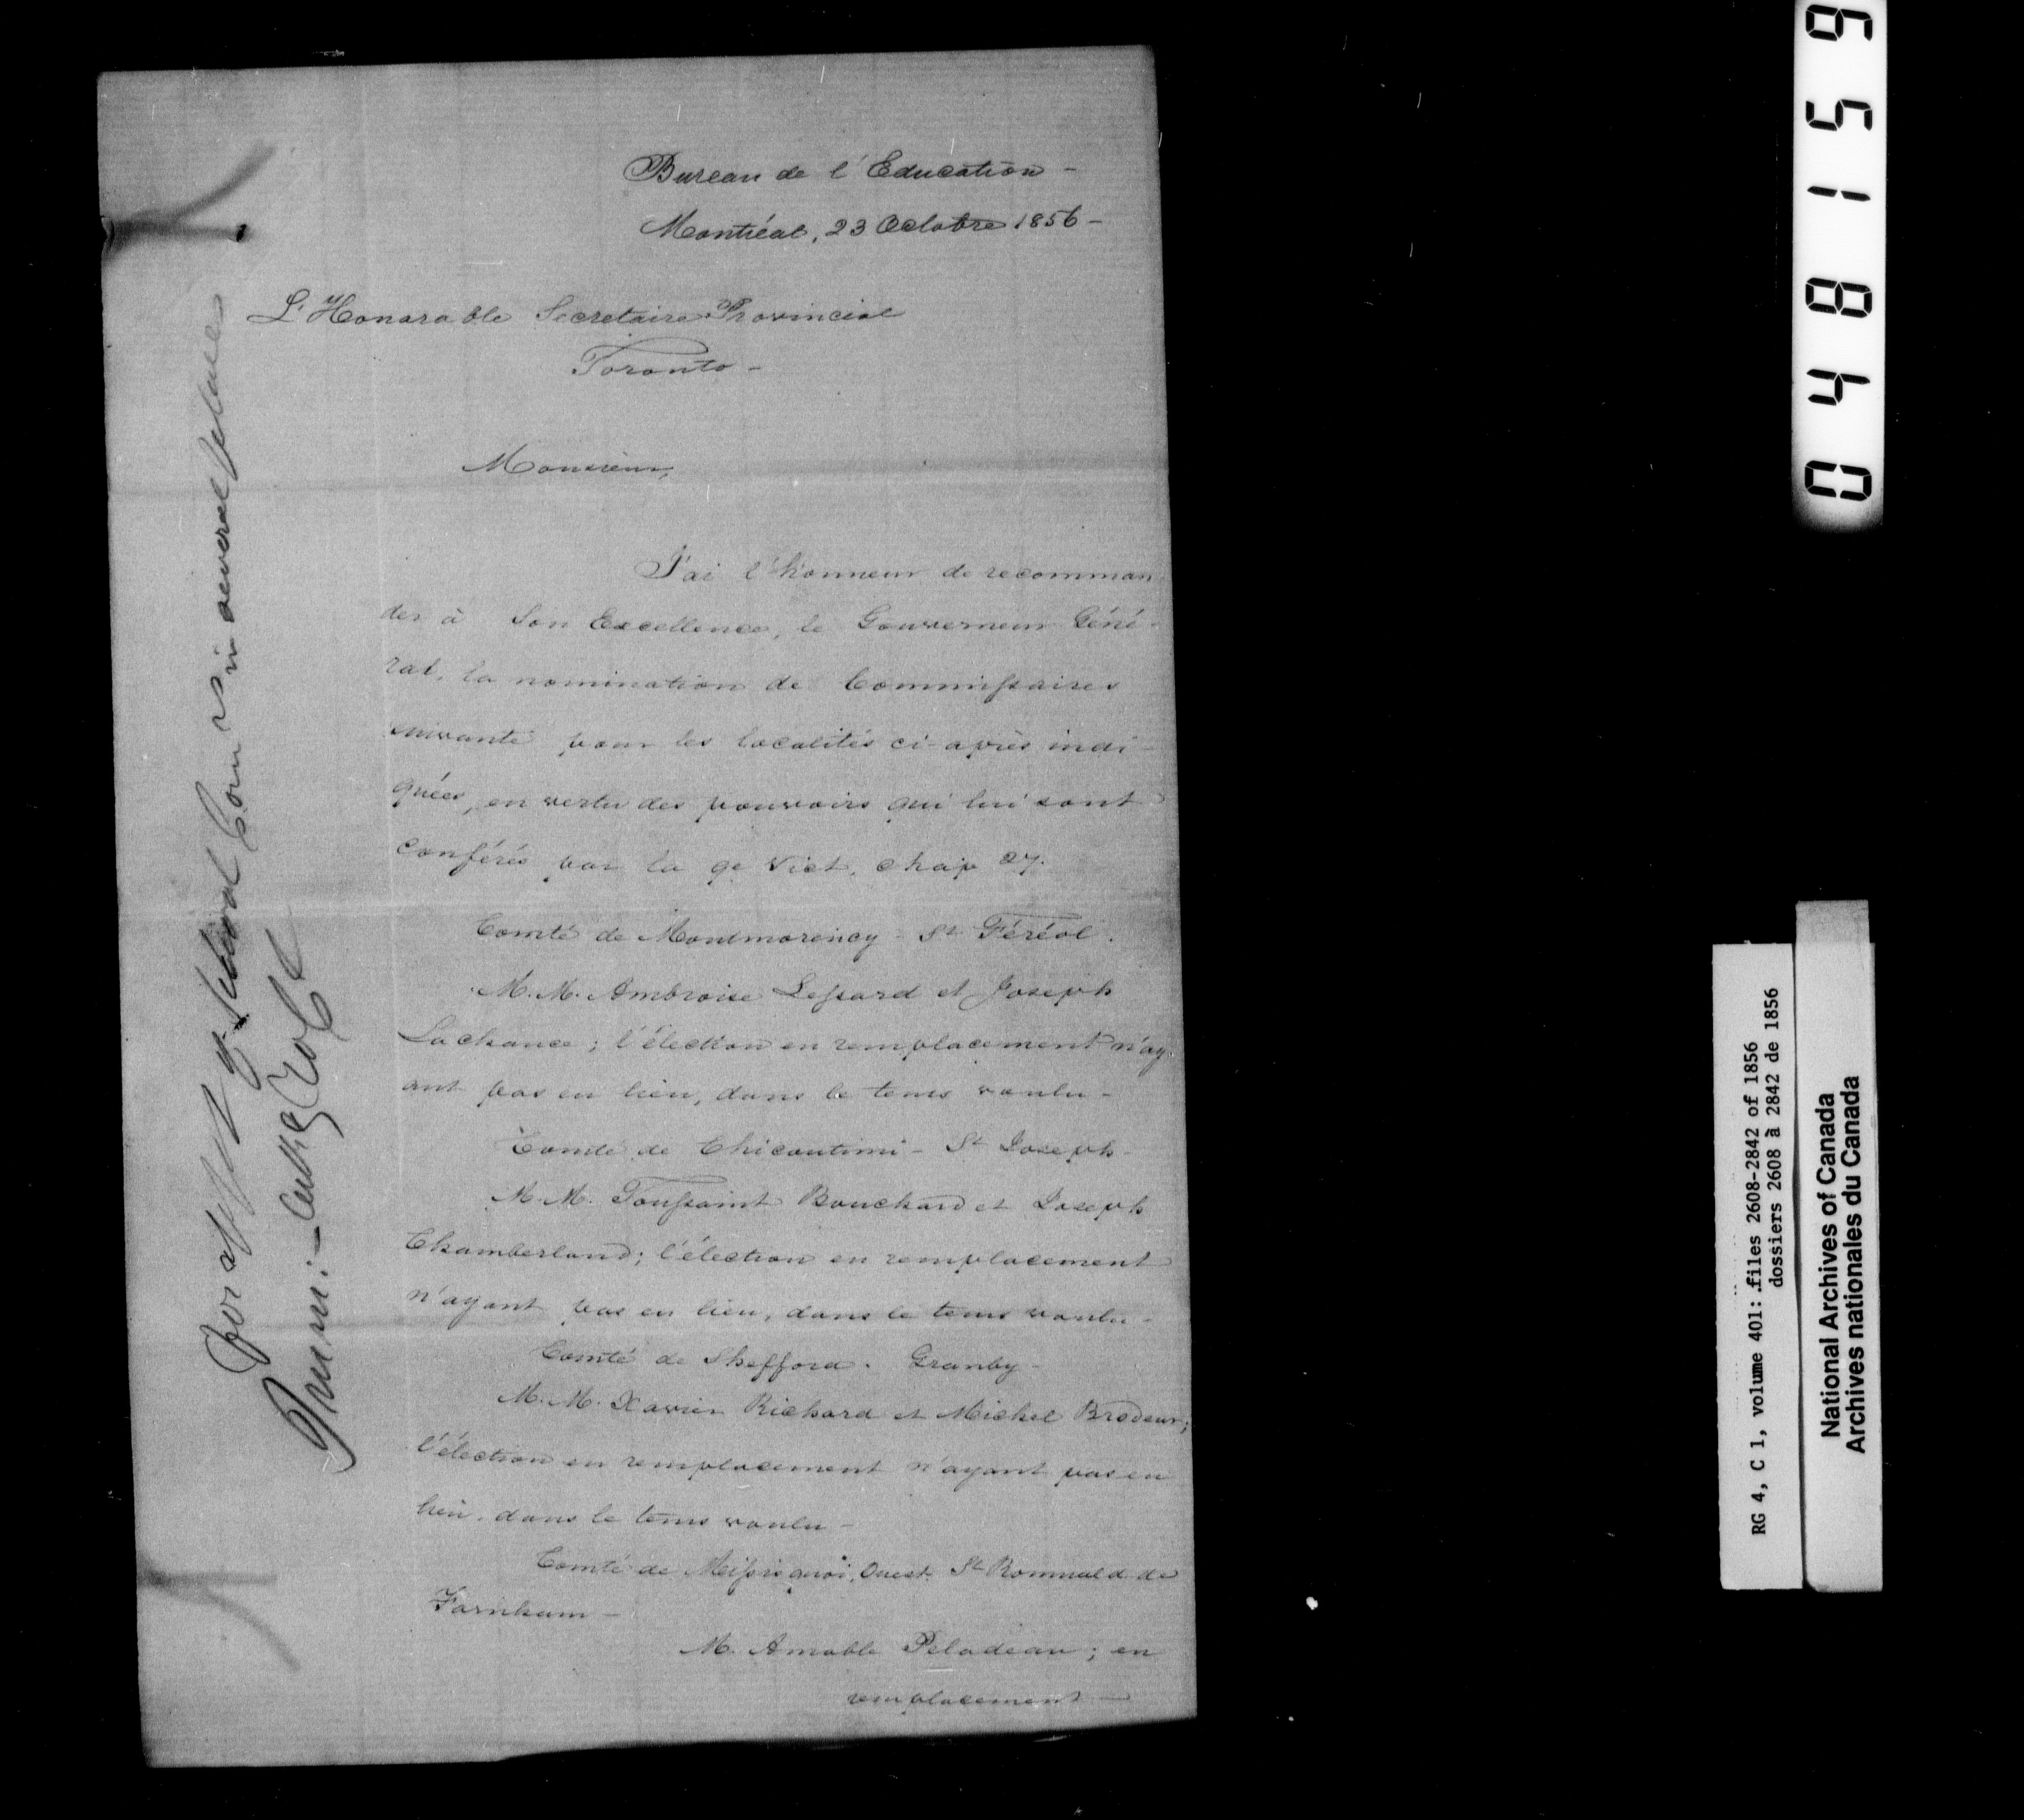 Bureau de l'Education -
Montréal, 23 Octobre 1856 -
L'Honorable Secretaire Provincial
Toronto -
Monsieur,
J'ai l'honneur de recomman
der à Son Excellence, le Gouverneur Géné-
ral, la nomination de Commissaires
suivante pour les localités ci-après indi-
quées, en vertu des pouvoirs qui lui sont
conférés par la 9e Vict. chap 27.
Comté de Montmorency - St Féréol.
M.M. Ambroise Lessard et Joseph
Lachance; l'élection en remplacement n'ay-
ant pas eu lieu, dans le tems voulu -
Comté de Chicoutimi - St Joseph -
M.M. Toussaint Bouchard et Joseph
Chamberland; l'élection en remplacement
n'ayant pas eu lieu, dans le tems voulu -
Comté de Shefford. Granby -
M.M. Xavier Richard et Michel Brodeur;
l'élection en remplacement n'ayant pas eu
lieu, dans le tems voulu -
Comté de Missisquoi, Ouest. St Romuald de
Farnham -
M. Amable Peladeau; en
remplacement -
For appt of School Comrs in several places
048159
RG 4, C 1, volume 401: files 2608-2842 of 1856
dossiers 2608 à 2842 de 1856
National Archives of Canada
Archives nationales du Canada